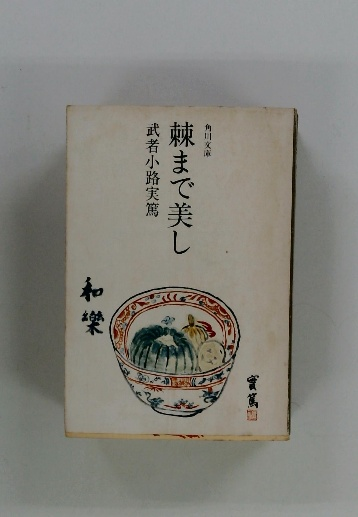 角川文庫
棘まで美し
武者小路実篤
和樂
實篤